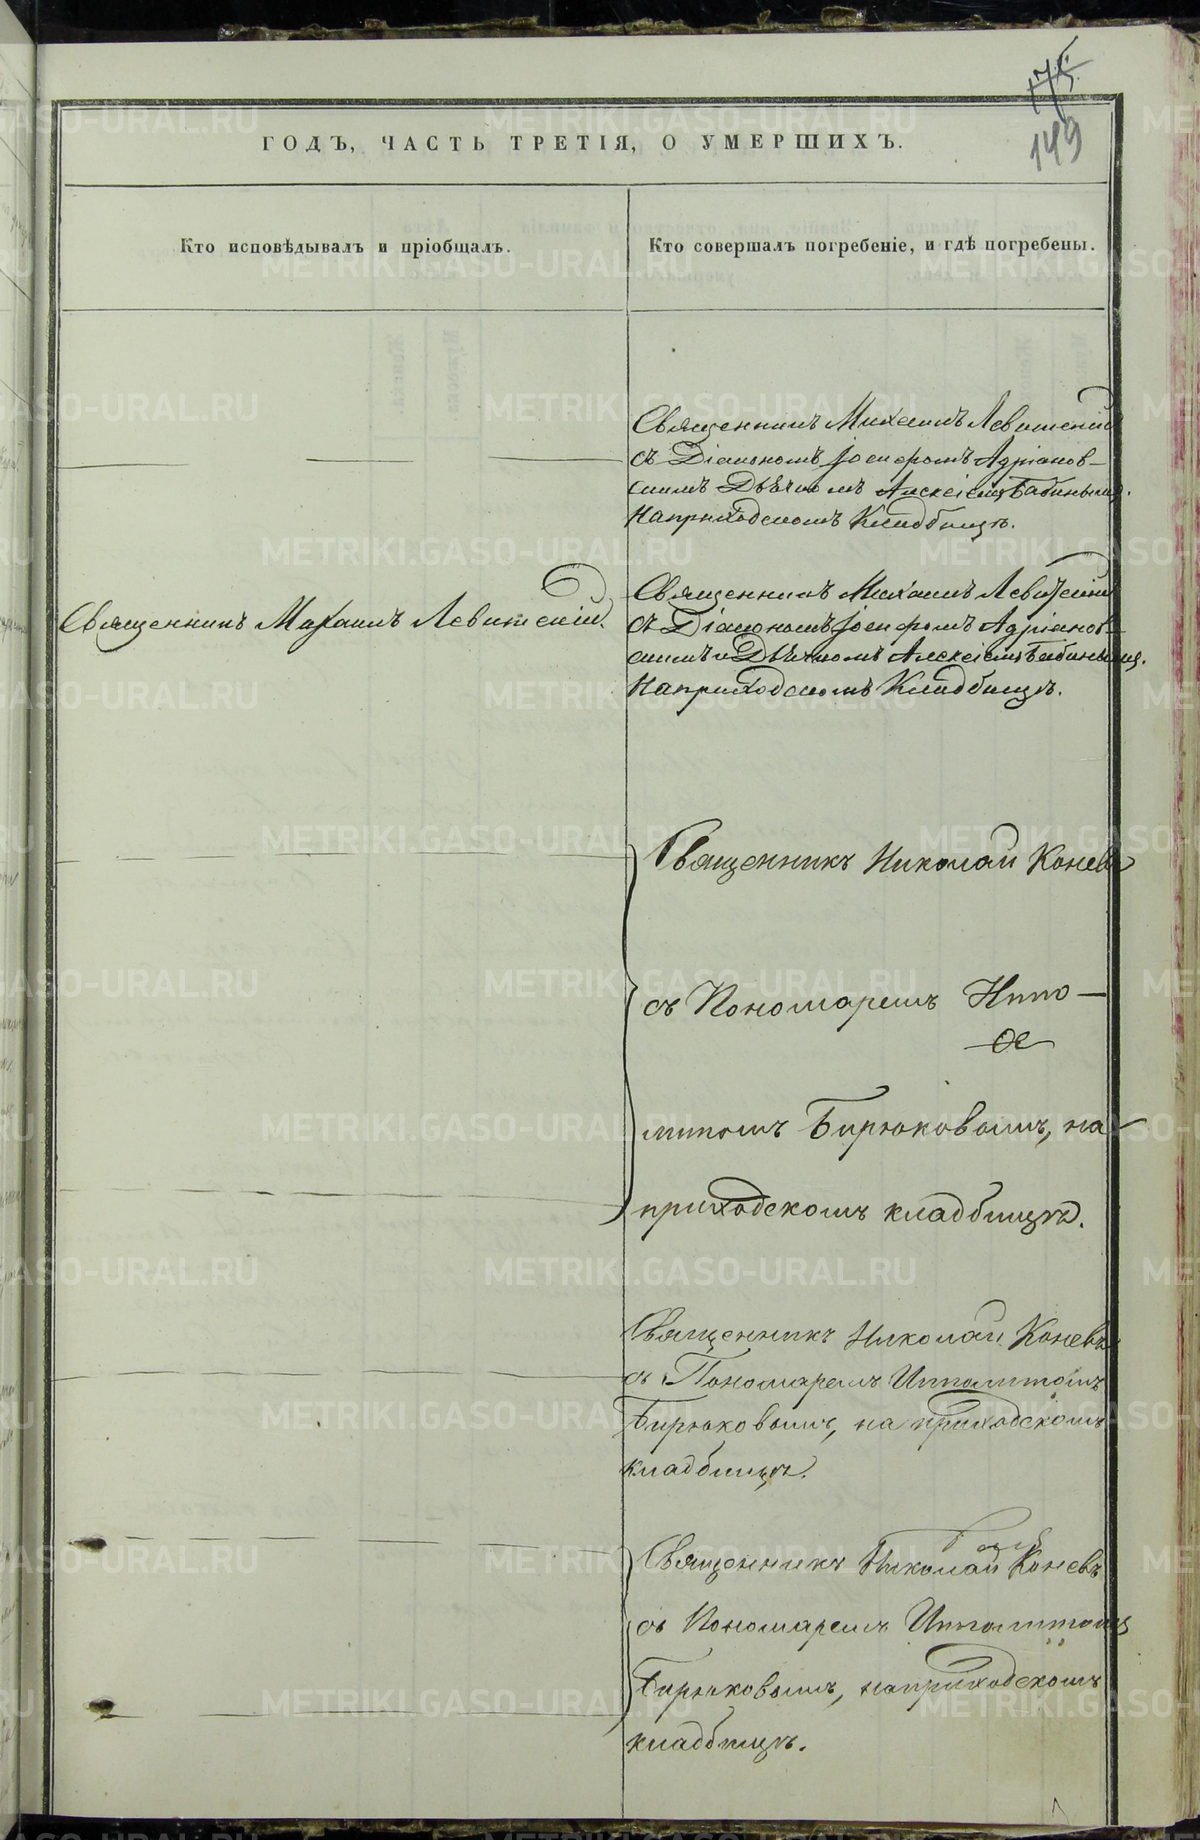 175
149
ГОДЪ, ЧАСТЬ ТРЕТІЯ, О УМЕРШИХЪ.
Кто исповѣдывалъ и пріобщалъ.
Кто совершалъ погребеніе, и гдѣ погребены.
Священникъ Михаилъ Левитскій
съ Діакономъ Іосифомъ Адріанов-
скимъ Дьячкомъ Алексіемъ Бабинымъ.
На приходскомъ Кладбищѣ.
Священникъ Михаилъ Левитскій.
Священникъ Михаилъ Левитскій
съ Діакономъ Іосифомъ Адріанов-
скимъ и Дьячкомъ Алексіемъ Бабинымъ.
На приходскомъ Кладбищѣ.
Священникъ Николай Коневъ
съ Пономаремъ Иппо-
литомъ Бирюковымъ, на
приходскомъ кладбищѣ.
Священникъ Николай Коневъ
съ Пономаремъ Ипполитомъ
Бирюковымъ, на приходскомъ
кладбищѣ.
Священникъ Николай Коневъ
съ Пономаремъ Ипполитомъ
Бирюковымъ, на приходскомъ
кладбищѣ.
METRIKI.GASO-URAL.RU